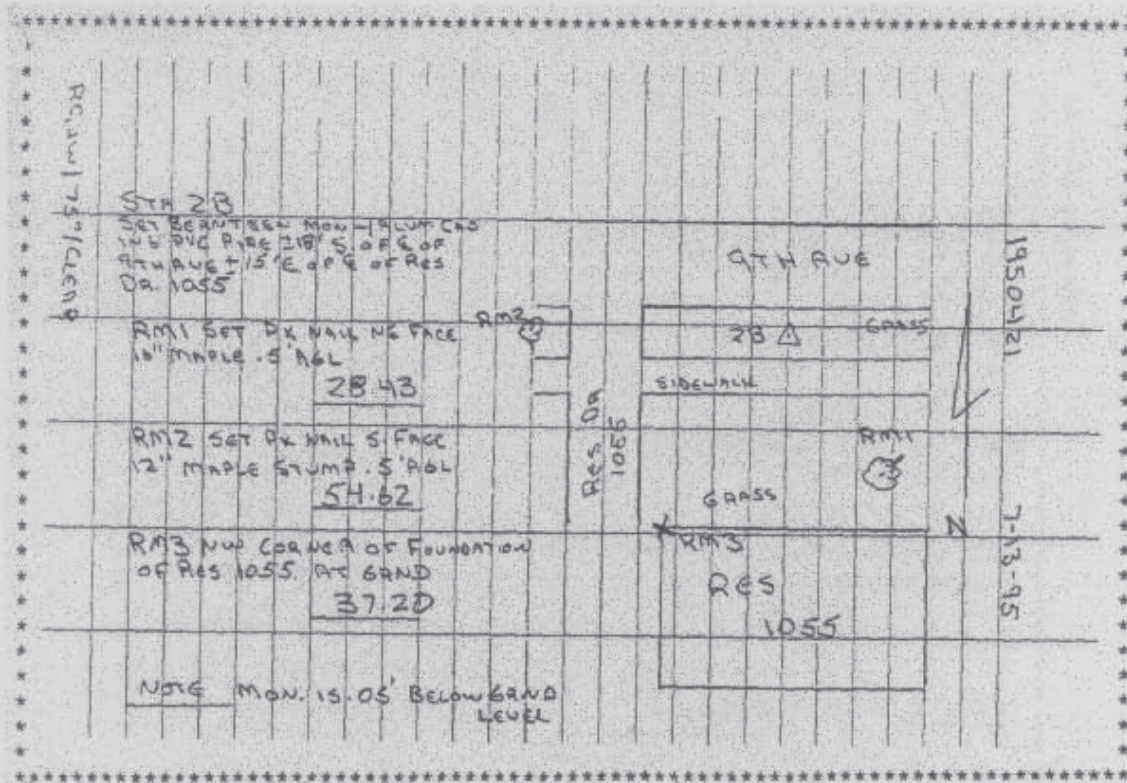 STA 2B
SET BERNTSEN MON W/ALUM CAS
IN E PVC PIPE 218' S. OF ℄ OF
9TH AVE + 15' E OF ℄ OF RES
DR 1055
RM1 SET PK NAIL NE FACE
16" MAPLE .5' AGL
28.43
RM2 SET PK NAIL S. FACE
12" MAPLE STUMP .5' AGL
54.62
RM3 NW CORNER OF FOUNDATION
OF RES 1055 AT GRND
37.20
NOTE MON. IS .05' BELOW GRND
LEVEL
9TH AVE
RM2
2B
GRASS
SIDEWALK
RES DR
1055
RM1
GRASS
RM3
N
RES
1055
19504121
7-13-95
75°/